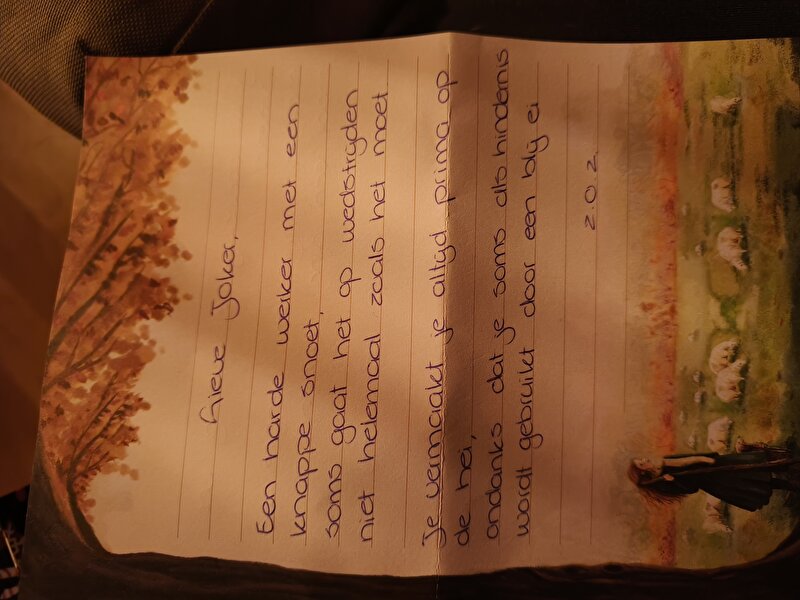 Lieve Joker,
Een harde werker met een
knappe snoet,
soms gaat het op wedstrijden
niet helemaal zoals het moet
Je vermaakt je altijd prima op
de hei,
ondanks dat je soms als hindernis
wordt gebruikt door een blij ei
z.o.z.